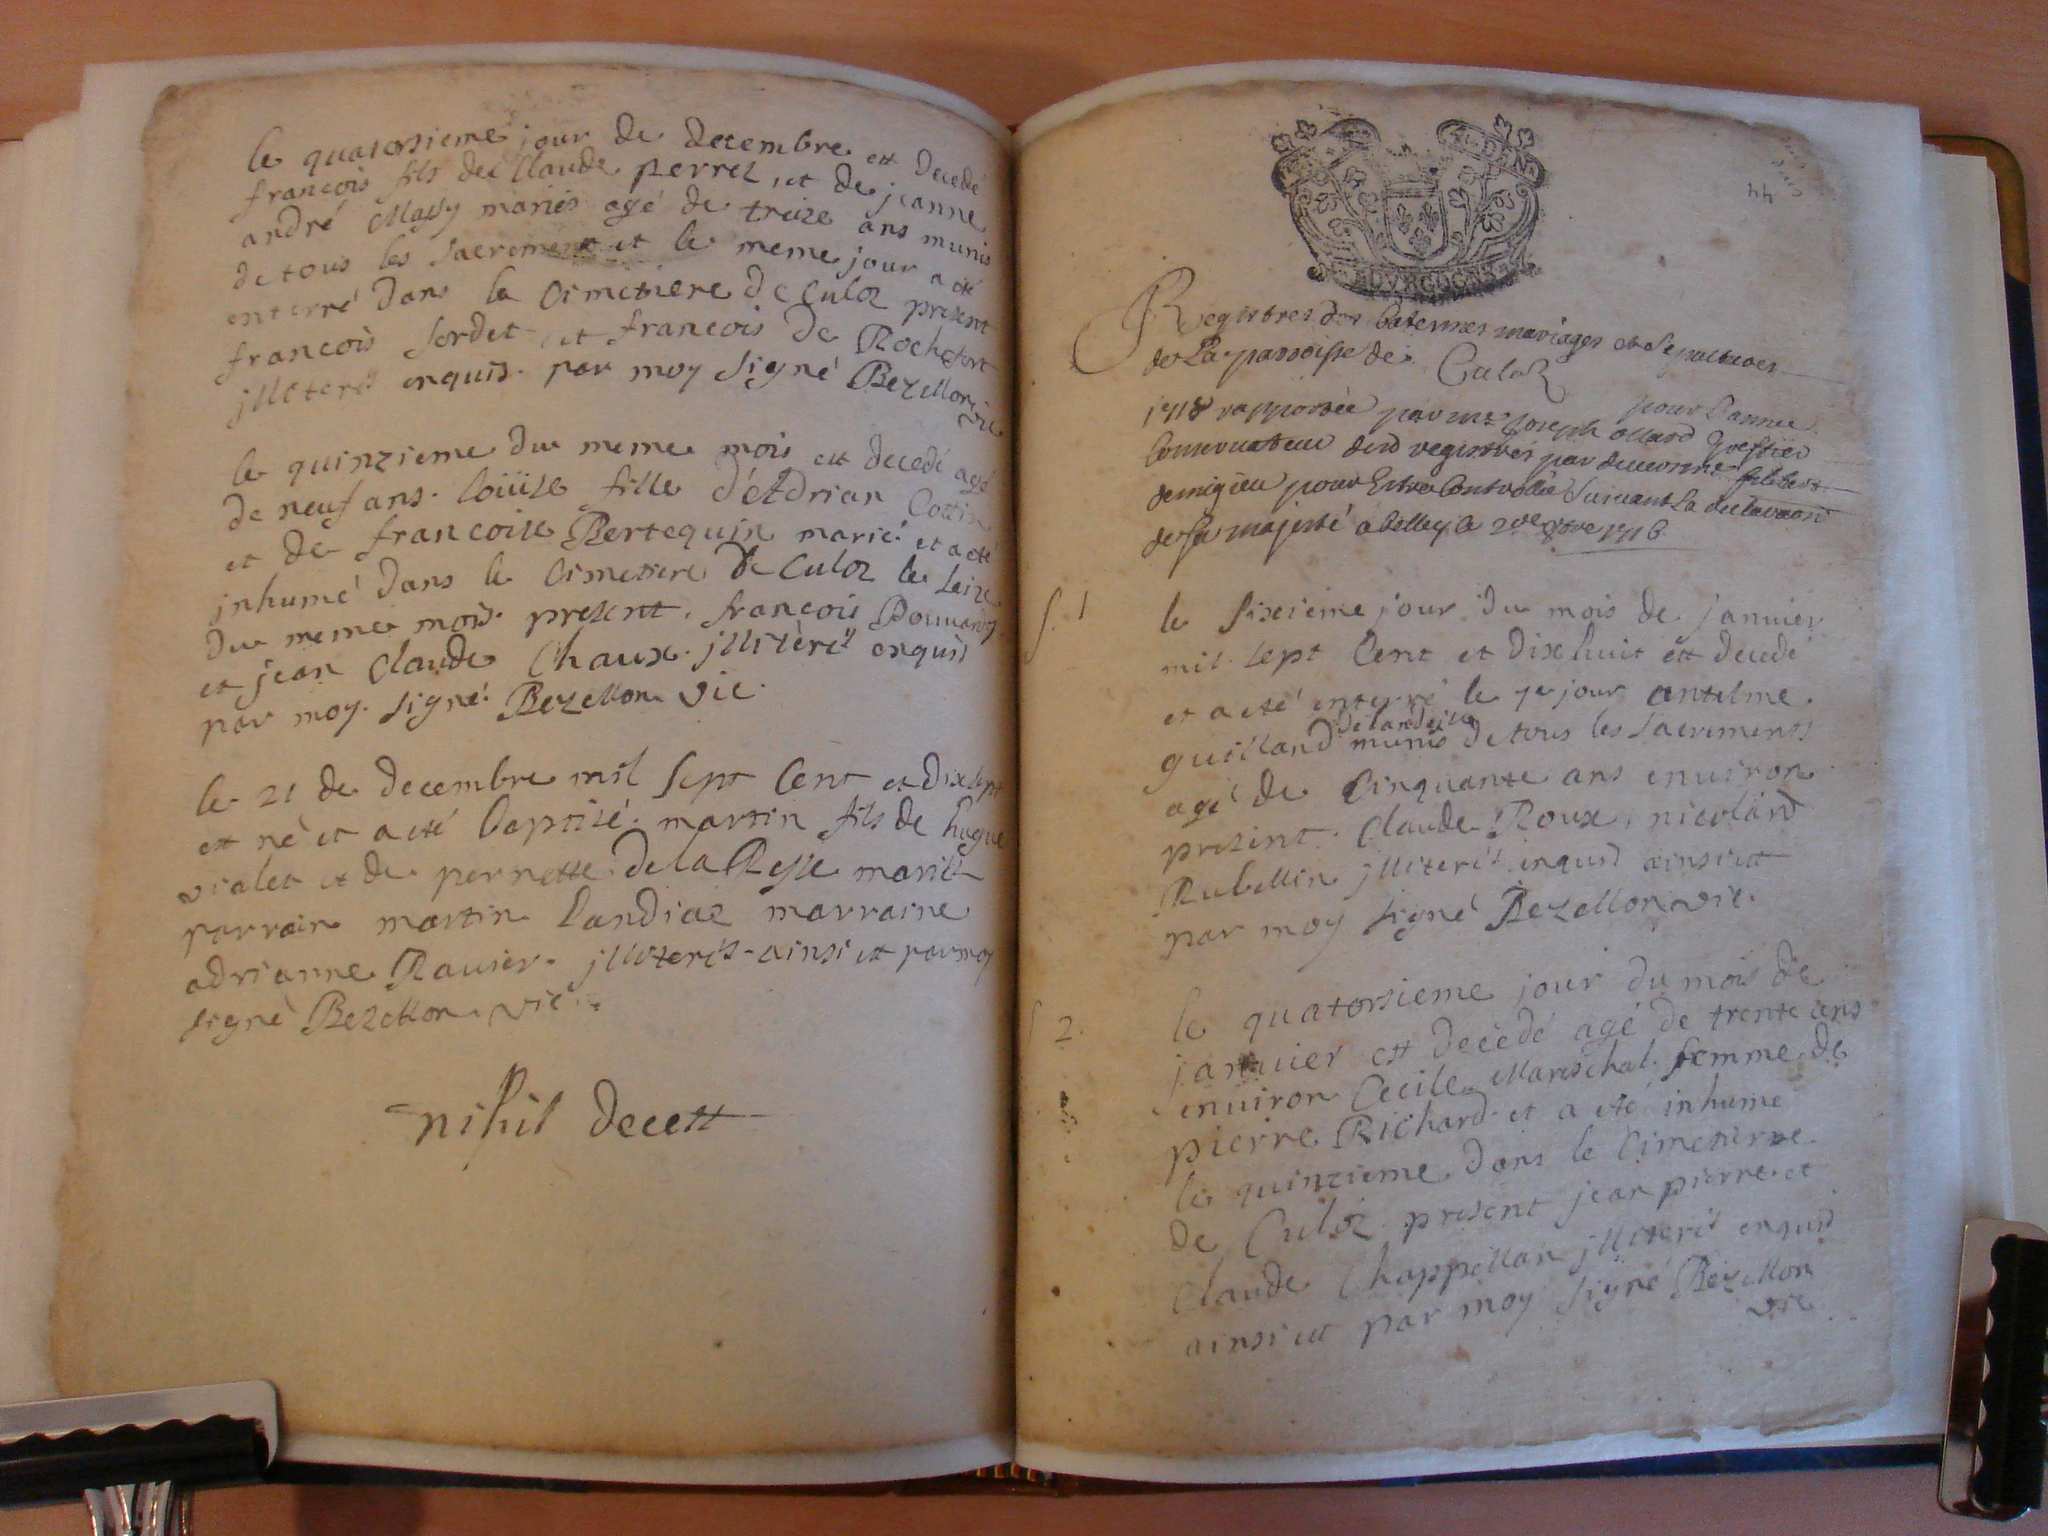 le quatorsieme jour de decembre est decedé
francois fils de Claude perret, et de jeanne
andré Massy mariés agé de treize ans munis
de tous les sacrements et le meme jour a eté
enterré dans la Cimetiere de Culoz present
francois sordet et francois de Rochefort
jlliterés enquis par moy signé Bezellon vic
le quinzieme du meme mois est decedé agé
de neuf ans loüise fille d'Adrian Cottin
et de francoise Bertequin marié et a eté
jnhumé dans le Cimetiere de Culoz le seize
du meme mois present francois
et jean Claude Chaux jlliterés enquis
par moy signé Bezellon vic
le 21 de decembre mil sept Cent et dixsept
est né et a eté baptisé martin fils de hugue
vialet et de pernette de la Resse mariés
parrain martin Candiaz marraine
adrianne Ravier jlliterés ainsi est par moy
signé Bezellon vic
nihil deest
44
BOVRGOGNE
Registres des batemes mariages et sepultures
de La parroisse de Culoz
pour l'année
1718 rapportée par me joseph ollard greffier
Conservateur desd registres par
pour Estre Controllée suivant La declaraon
de sa majesté a belley le 2de 8bre 1716
S. 1 le sixieme jour du mois de janvier
mil sept Cent et dixhuit est decedé
et a eté enterré le 7e jour antelme
guilland munis de tous les sacrements
agé de Cinquante ans environ
present Claude Roux, nicolard
Rubellin jlliterés enquis ainsi est
par moy signé Bezellon vic.
S 2. le quatorsieme jour du mois de
janvier est decedé agé de trente ans
environ Cecile Mareschal femme de
pierre Richard et a eté inhumé
le quinzieme dans le Cimetierre
de Culoz present jean pierre et
Claude Chappellan jlliterés enquis
ainsi est par moy signé Bezellon
vic